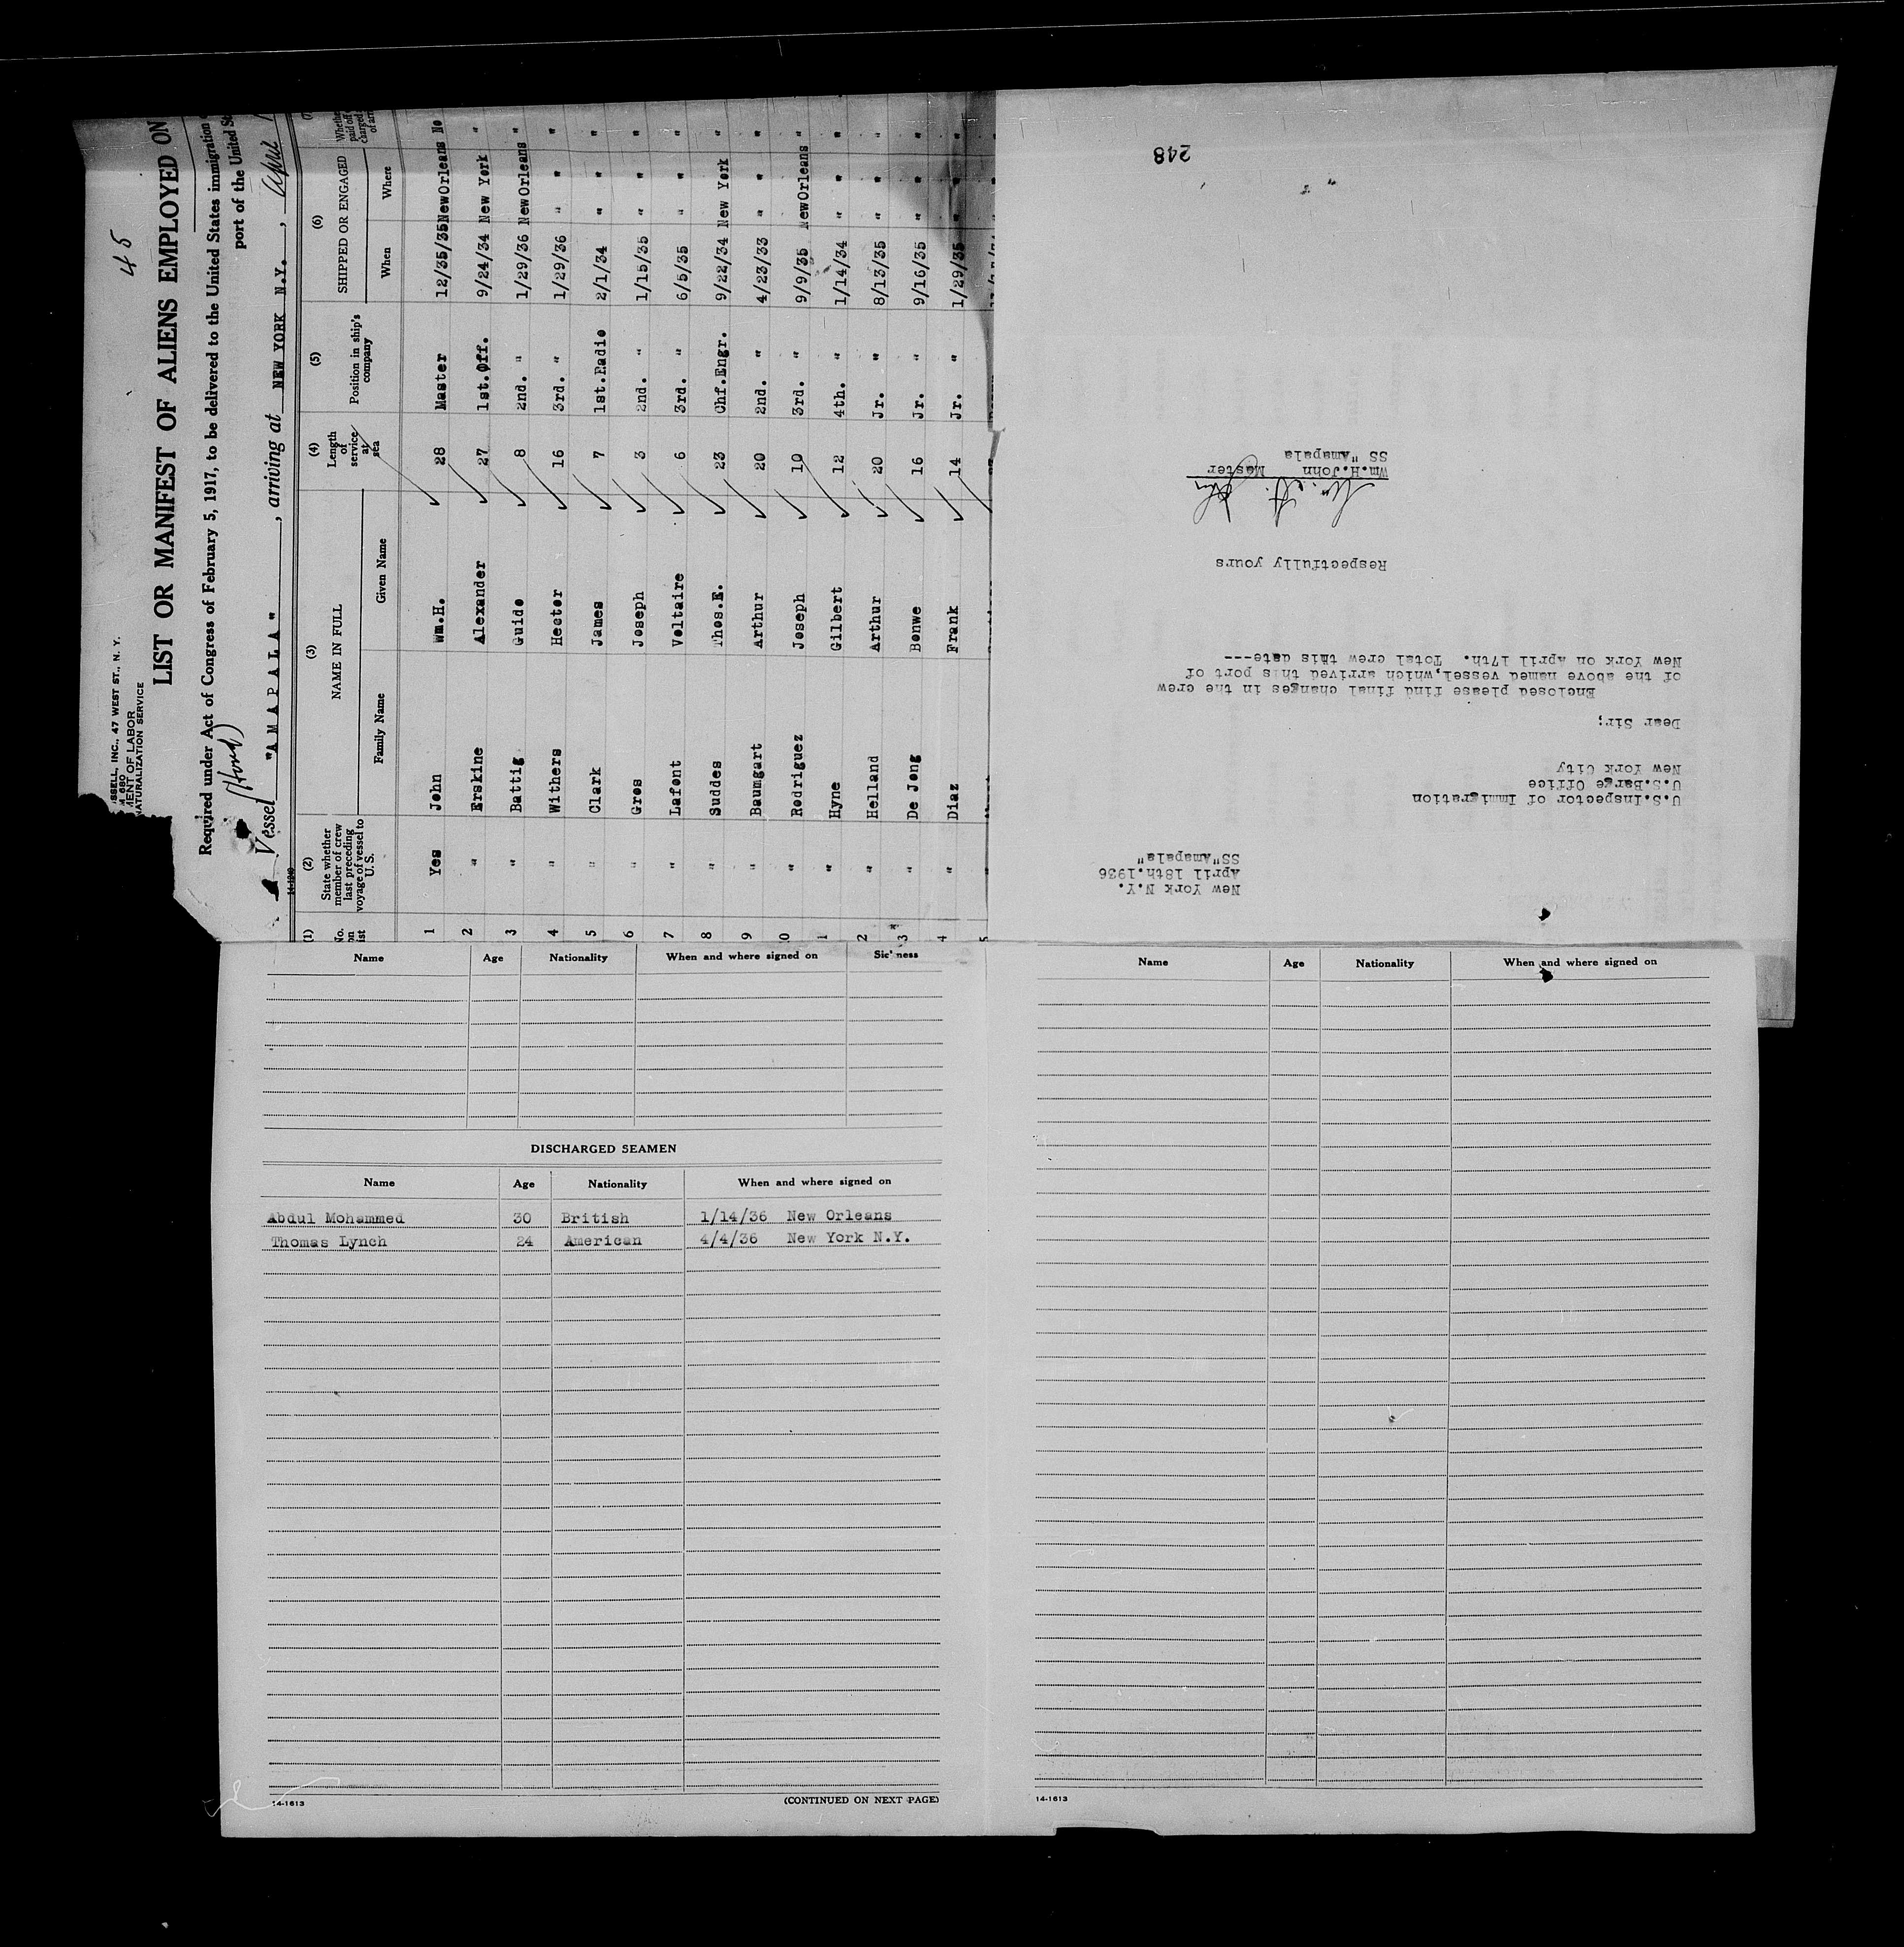 45
SSELL, INC., 47 WEST ST., N. Y.
M 680
MENT OF LABOR
NATURALIZATION SERVICE
LIST OR MANIFEST OF ALIENS EMPLOYED ON
Required under Act of Congress of February 5, 1917, to be delivered to the United States immigration
port of the United St
Vessel "AMAPALA" , arriving at NEW YORK N.Y. , April
(Hond)
(1) No. on list (2) State whether member of crew last preceding voyage of vessel to U. S. (3) NAME IN FULL Family Name Given Name (4) Length of service at sea (5) Position in ship's company (6) SHIPPED OR ENGAGED When Where
1 Yes John Wm.H. 28 Master 12/35/35 NewOrleans No
2 " Erskine Alexander 27 1st.Off. 9/24/34 New York "
3 " Battig Guido 8 2nd. " 1/29/36 NewOrleans "
4 " Withers Hector 16 3rd. " 1/29/36 " " "
5 " Clark James 7 1st.Radio 2/1/34 " " "
6 " Gros Joseph 3 2nd. " 1/15/35 " " "
7 " Lafont Voltaire 6 3rd. " 6/5/35 " " "
8 " Suddes Thos.E. 23 Chf.Engr. 9/22/34 New York "
9 " Baumgart Arthur 20 2nd. " 4/23/33 " " "
0 " Rodriguez Joseph 10 3rd. " 9/9/35 NewOrleans "
1 " Hyne Gilbert 12 4th. " 1/14/34 " " "
2 " Helland Arthur 20 Jr. " 8/13/35 " " "
3 " De Jong Bonwe 16 Jr. " 9/16/35 " " "
4 " Diaz Frank 14 Jr. " 1/29/35 " " "
5
New York N.Y.
April 18th.1936
SS"Amapala"
U.S.Inspector of Immigration
U.S.Barge Office
New York City
Dear Sir;
Enclosed please find final changes in the crew
of the above named vessel,which arrived this port of
New York on April 17th. Total crew this date---
Respectfully yours
Wm. H. John
Wm.H.John Master
SS "Amapala
248
Name Age Nationality When and where signed on Sickness
DISCHARGED SEAMEN
Name Age Nationality When and where signed on
Abdul Mohammed 30 British 1/14/36 New Orleans
Thomas Lynch 24 American 4/4/36 New York N.Y.
14-1613 (CONTINUED ON NEXT PAGE)
Name Age Nationality When and where signed on
14-1613